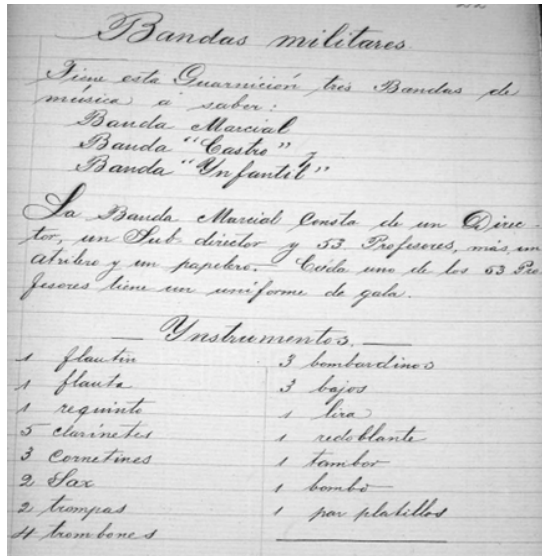 Bandas militares.
Tiene esta Guarnición tres Bandas de
música a saber:
Banda Marcial
Banda "Castro" y
Banda "Ynfantil"
La Banda Marcial Consta de un Direc-
tor, un Sub director y 53 Profesores, más un
atrilero y un papelero. Cada uno de los 53 Pro
fesores tiene un uniforme de gala.
Ynstrumentos.
1 flautin
1 flauta
1 requinto
5 clarinetes
3 Cornetines
2 Sax
2 trompas
4 trombones
3 bombardinos
3 bajos
1 lira
1 redoblante
1 tambor
1 bombo
1 par platillos